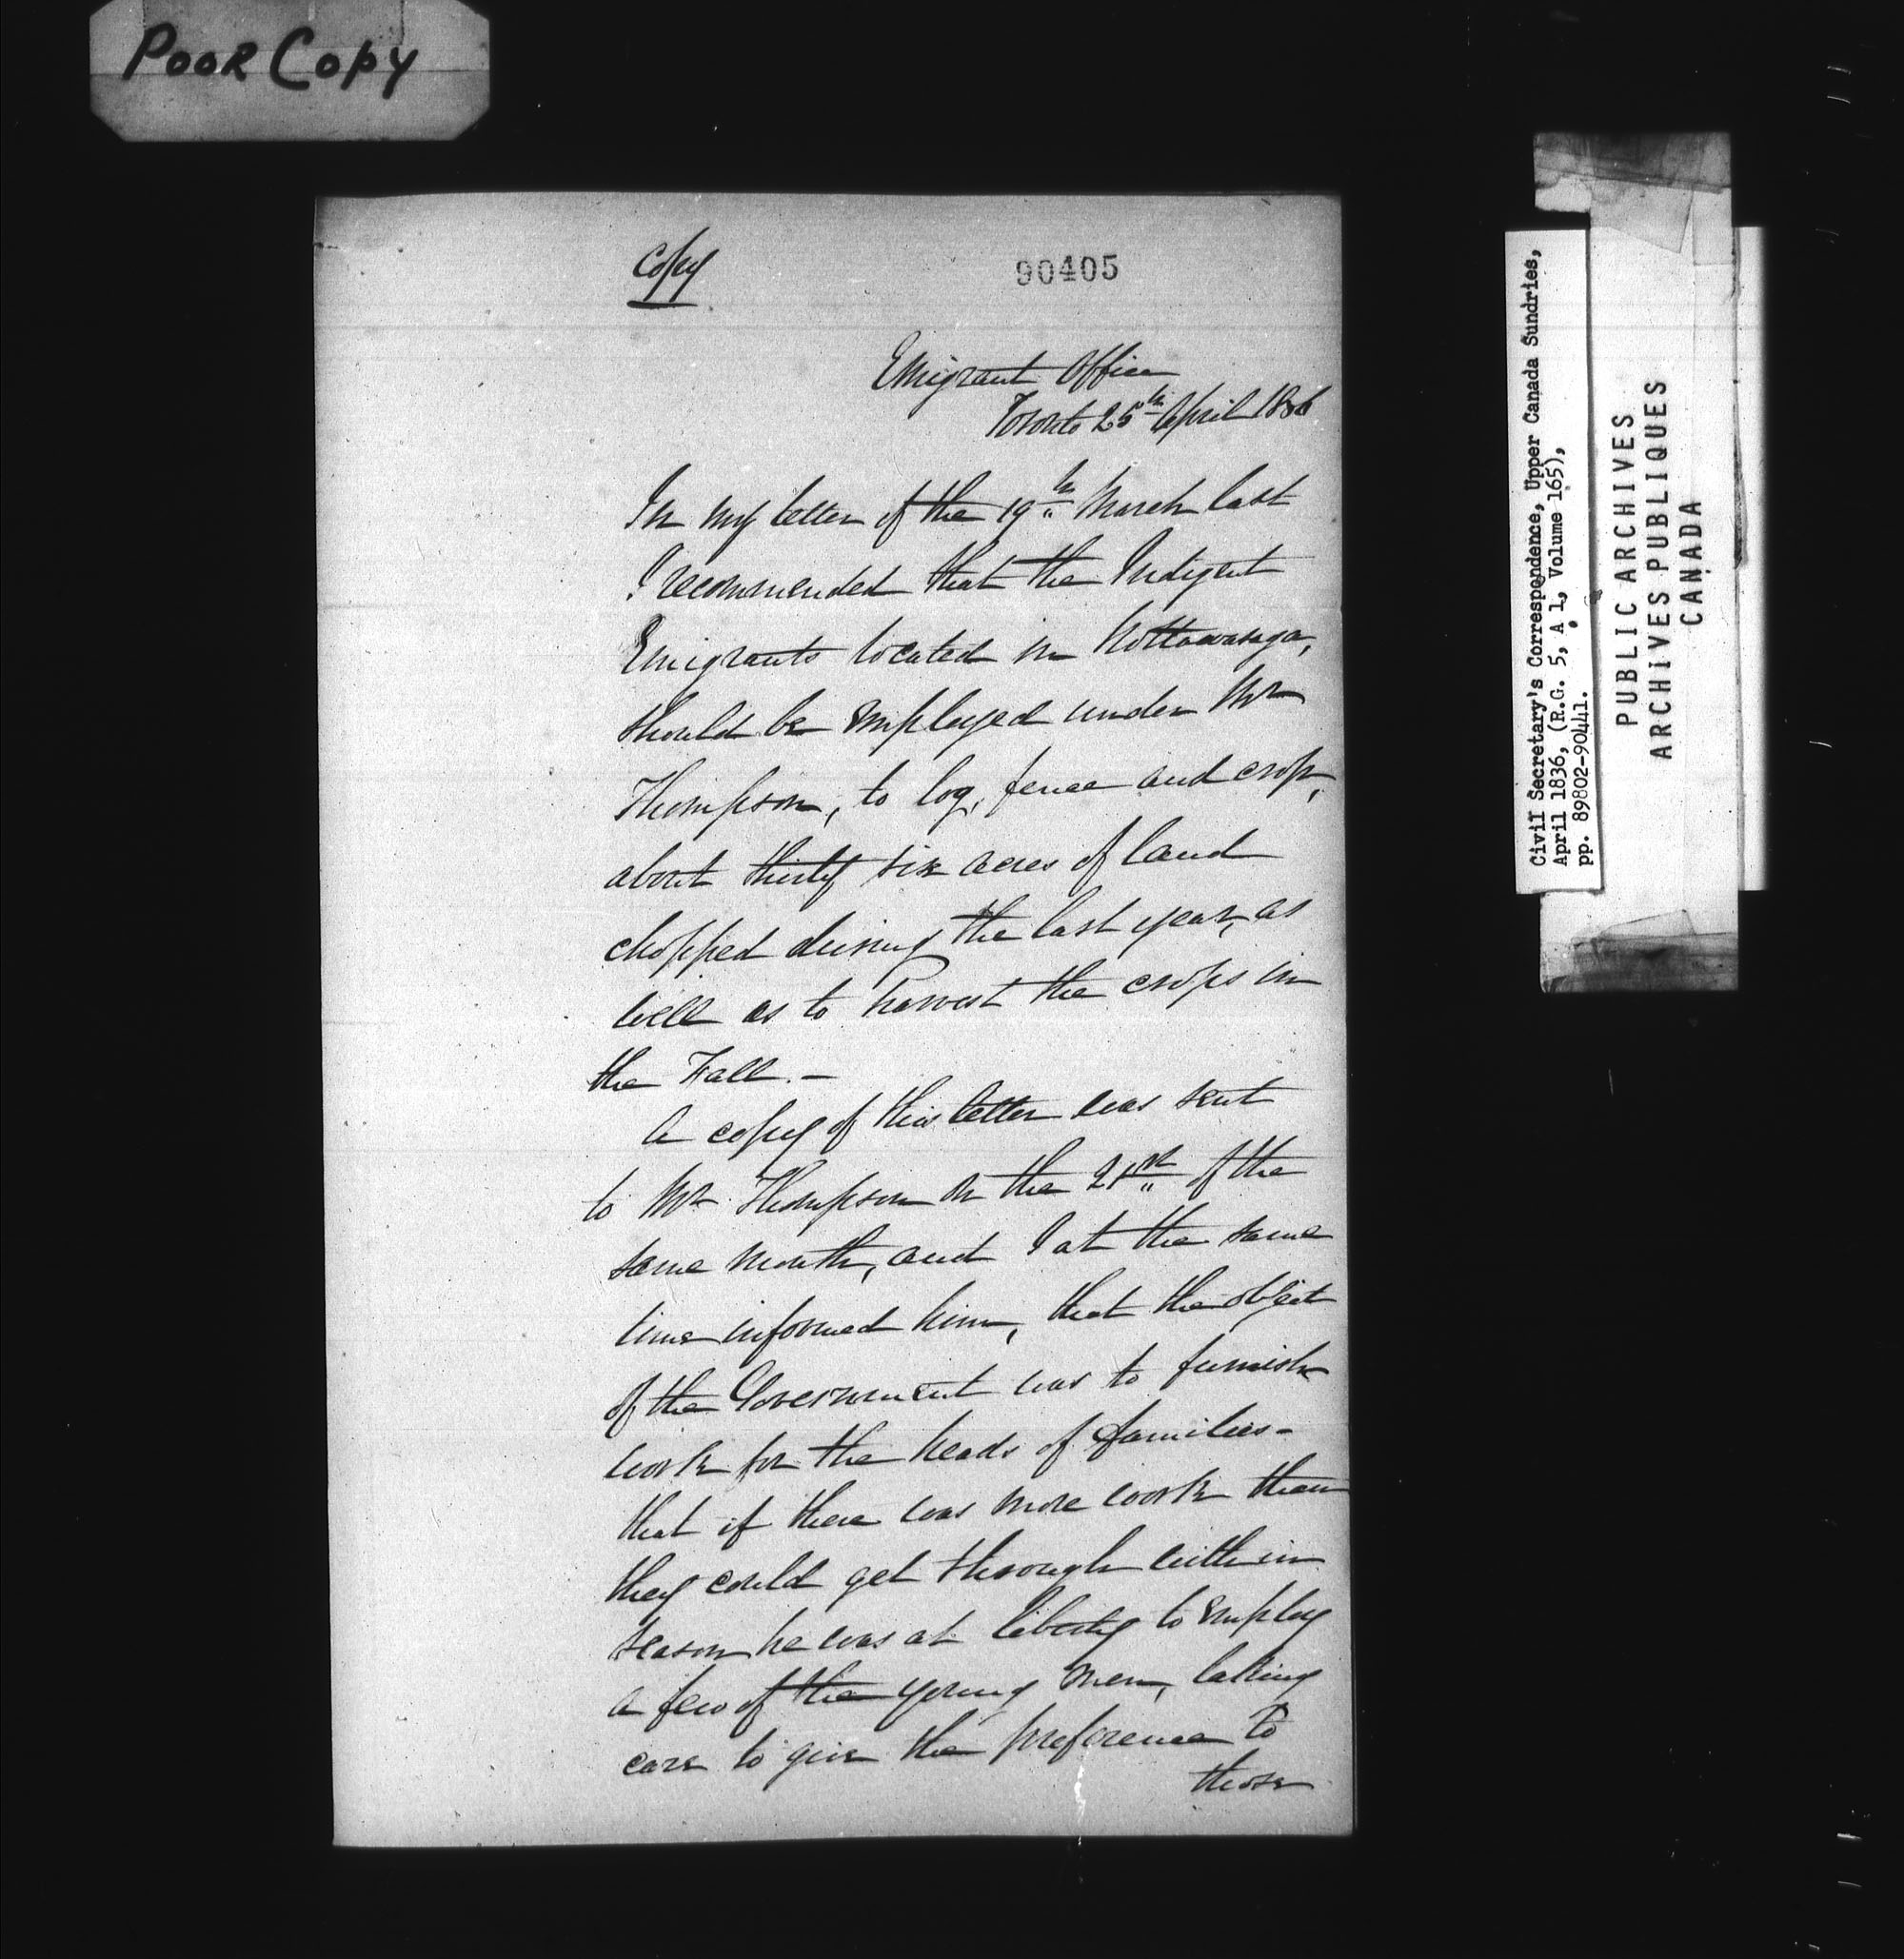 Poor Copy
Copy
90405
Emigrant Office
Toronto 25th April 1836
In my letter of the 19th March last
I recommended that the Indigent
Emigrants located in Nottawasaga,
should be employed under Mr
Thompson, to log, fence and crop,
about thirty six acres of land
chopped during the last year, as
well as to harvest the crops in
the Fall. –
A copy of this letter was sent
to Mr Thompson on the 21st of the
same month, and I at the same
time informed him, that the object
of the Government was to furnish
work for the heads of families –
that if there was more work than
they could get through with in
season he was at liberty to employ
a few of the young men, taking
care to give the preference to
those
Civil Secretary's Correspondence, Upper Canada Sundries,
April 1836, (R.G. 5, A 1, Volume 165),
pp. 89802-90441.
PUBLIC ARCHIVES
ARCHIVES PUBLIQUES
CANADA